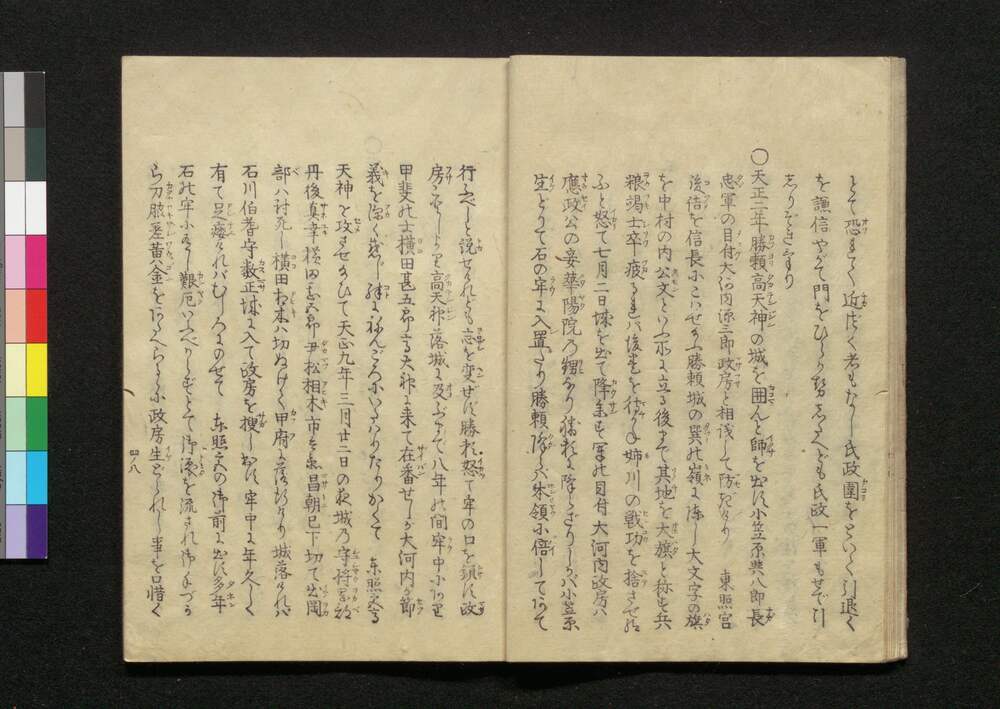 とて恐れて近づく者もなし氏政圍をといて引退く
を謙信やがて門をひらき勢したへども氏政一軍もせで引
しりぞきけり
〇天正二年勝頼高天神の城を囲んと師を出す小笠原與八郎長
忠軍の目付大河内源三郎政房と相議して防ぎけり 東照宮
後詰を信長にこはせ給ふ勝頼城の巽の嶺に陣し大文字の旗
を中村の内公文といふ所に立る後まで其地を大旗と称す兵
粮竭士卒疲るれバ後巻を待かね姉川の戦功を捨させ給
ふと怒て七月二日城を出て降参す軍の目付大河内政房ハ
應政公の妾華陽院乃甥なり勝頼に降らざりしかバ小笠原
生どりて石の牢に入置たり勝頼降らバ本領に倍してあて
行ふべしと説せけれども志を変ぜず勝頼怒て牢の口を鎖す政
房
高天神落城に及ぶまで八年の間牢中にあり
甲斐の士横田甚五郎高天神に来て在番せしが大河内が節
義を深く感じ殊にねんごろにいたはりたりかくて 東照宮高
天神を攻させ給ひて天正九年三月廿二日の夜城乃守将岡部
丹後真幸横田甚五郎尹松相木市兵衛昌朝已下切て出岡
部ハ討死し横田相木ハ切ぬけて甲府に落行けり城落けれバ
石川伯耆守数正城に入て政房を捜し出す牢中に年久しく
有て足痿けれバむしろにのせて 東照宮の御前に出す多年
石の牢に有し艱厄いふべからずとて御涙を流され御手づか
ら刀脇差黄金をあたへらる小政房生どられし事を口惜く
四ノ八